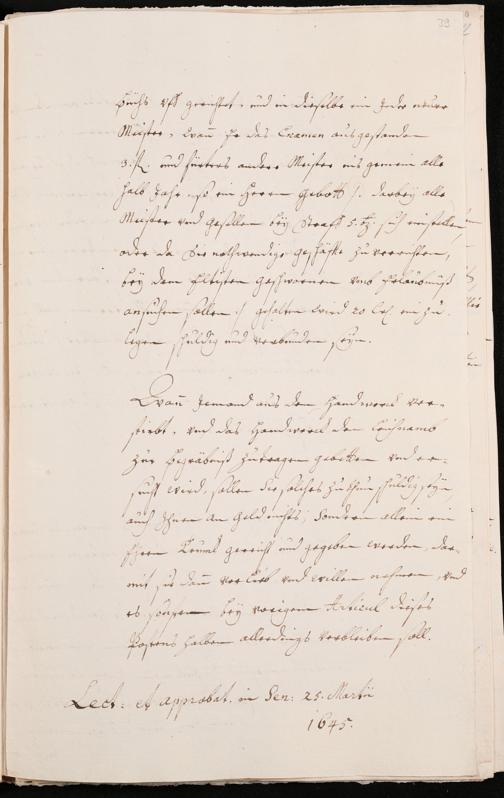 39
Büchs uff gerichtet, und in dieselbe ein Jeder neuer
Meister, Wann Er das Examen ausgestanden
3. fl. und fürters andere Meister ins gemein alle
halb Jahr, so ein Herrn gebott /: darbey alle
Meister und Gesellen bey Straff 5. ß sich einstellen,
oder da Sie nothwendige geschäffte zu verrichten,
bey dem Eltisten geschwornen umb Erlaubnuß
ansuchen sollen :/ gehalten wird 20 ein zu
legen, schuldig und verbunden seyn.
Wann Jemand aus dem Handwerck ver-
stirbt, und das Handwerck den Leichnamb
zur Begräbniß zutragen gebetten und er-
sucht wird, sollen sie solches zuthun schuldig seyn,
auch Ihnen an Geld nichts, sondern allein ein
Ehren Trunk gereicht und gegeben werden, dar-
mit sie dann vor lieb und willen nehmen, und
es sonsten bey vorigem Articul dieses
Postens halben allerdings verbleiben soll.
Lect: et approbat. in Sen: 25. Martii
1645.